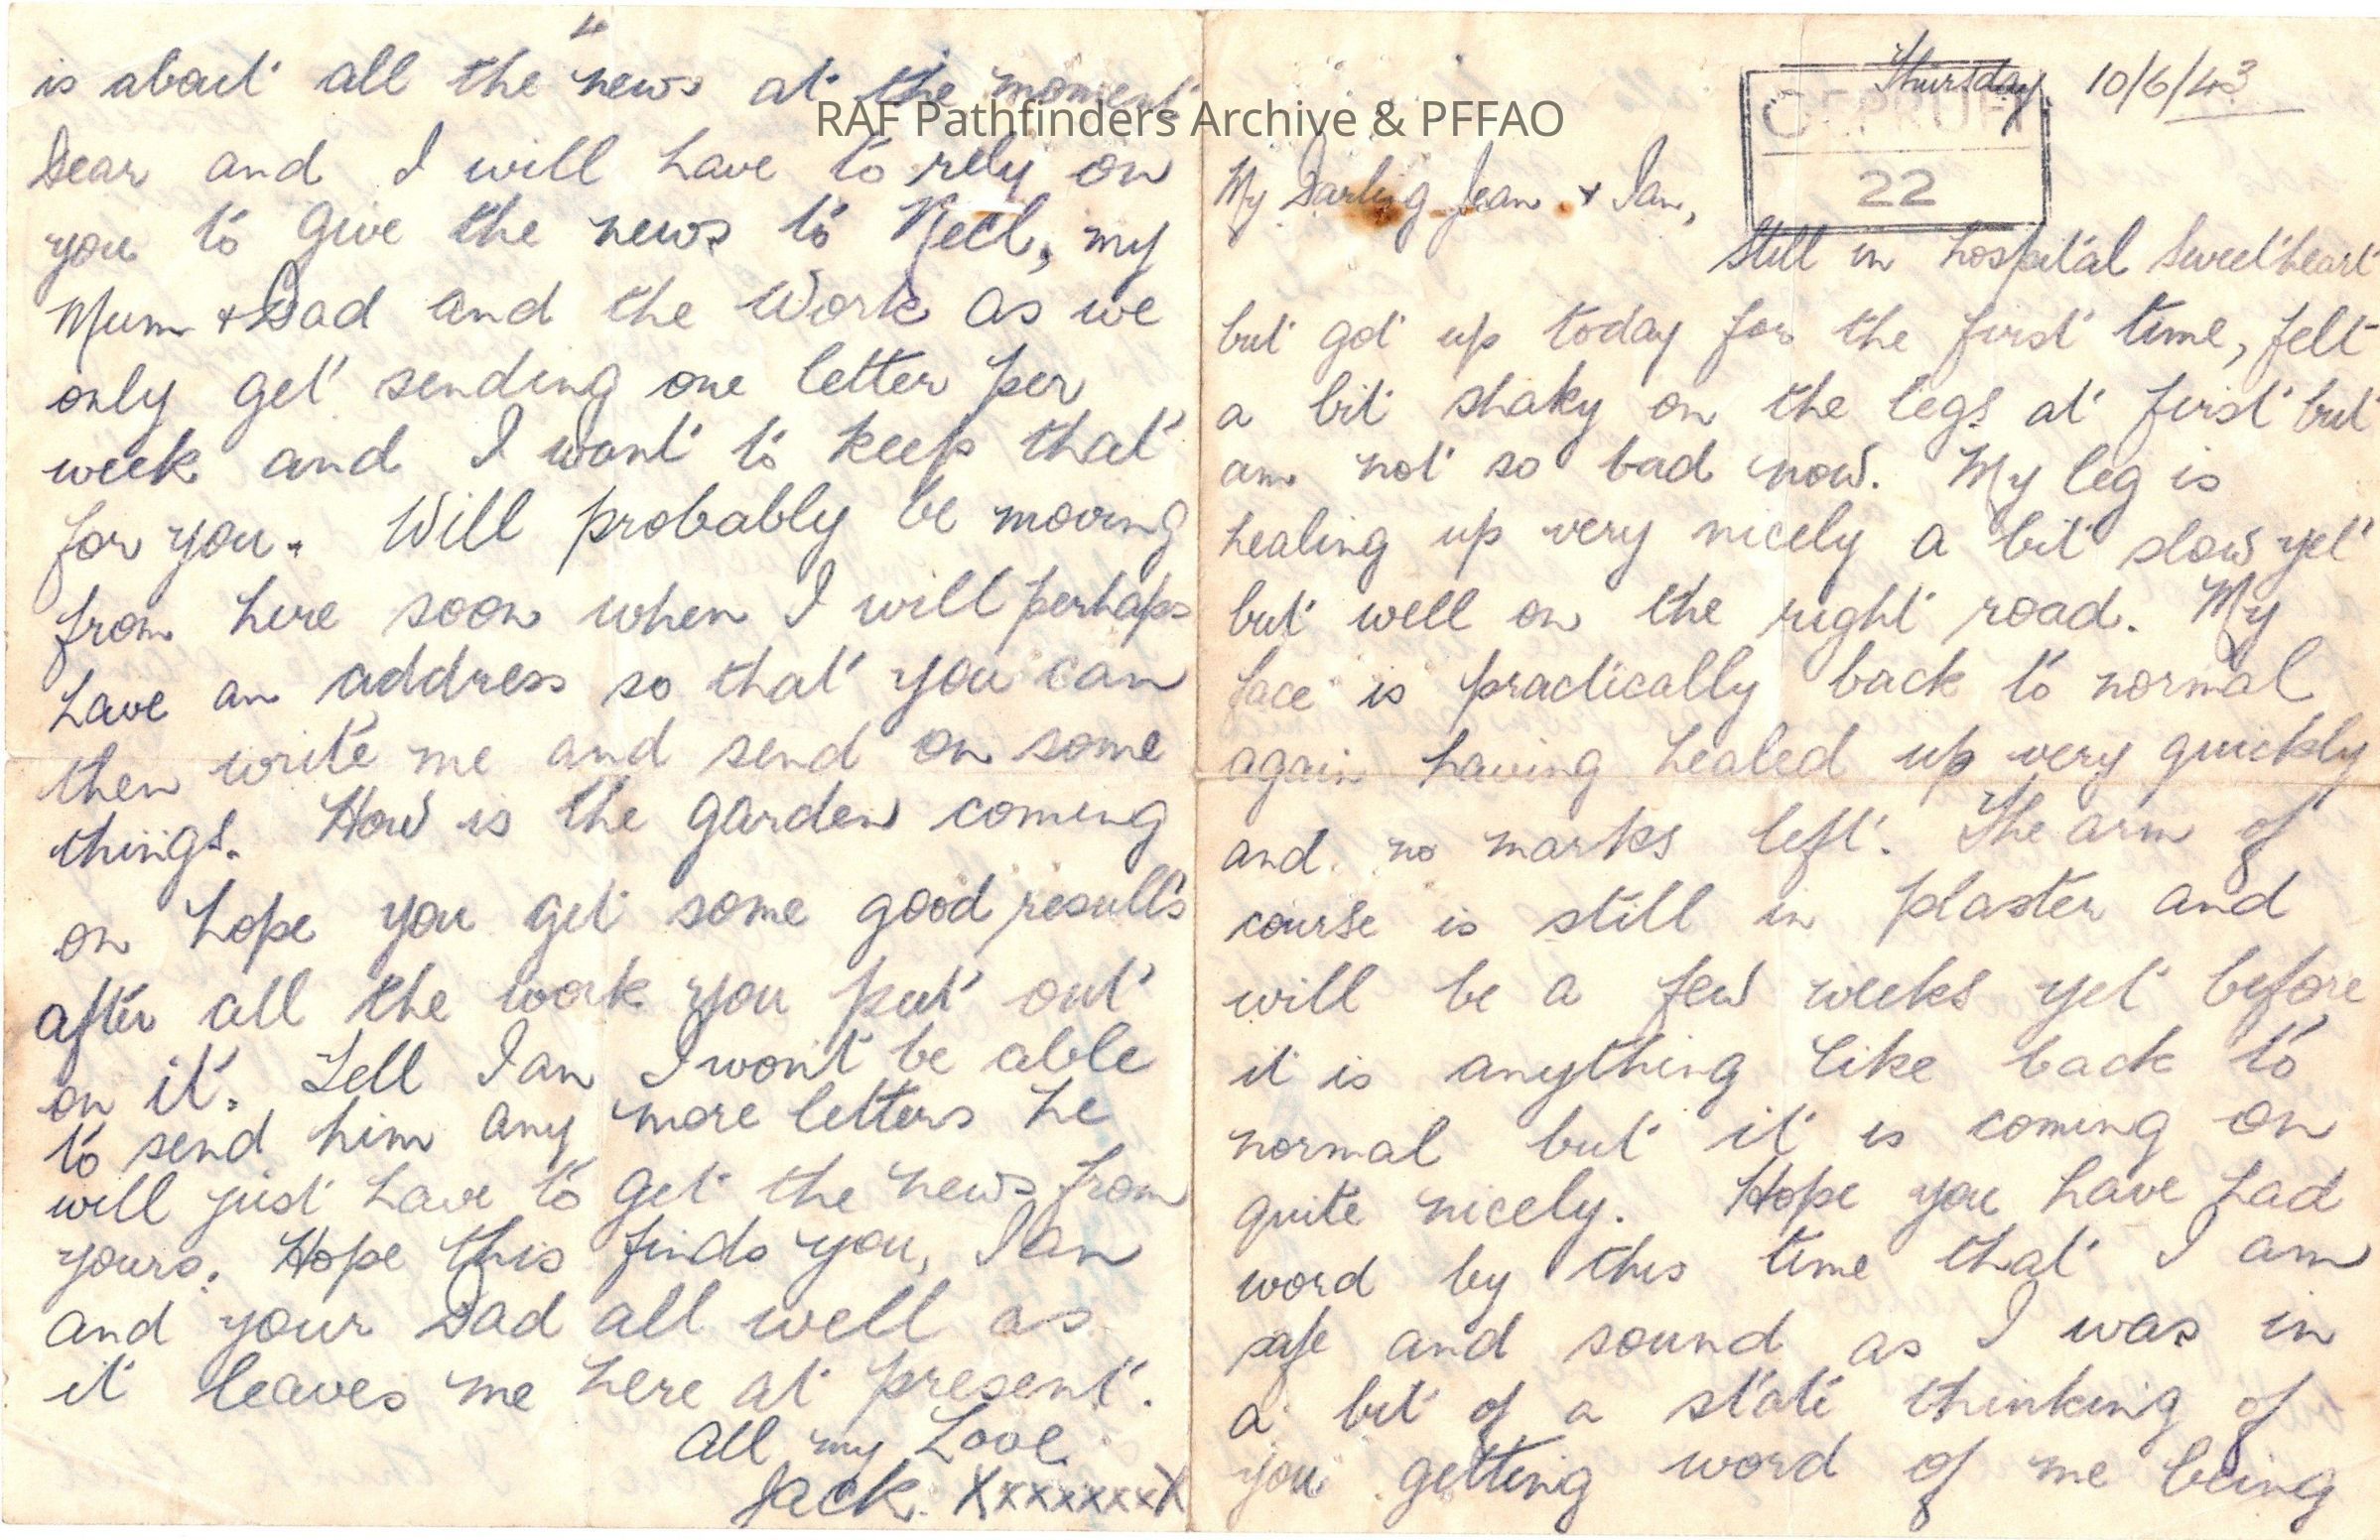 RAF Pathfinders Archive & PFFAO
Thursday 10/6/43
GEPRÜFT
22
My Darling Jean + Ian,
Still in hospital Sweetheart
but got up today for the first time, felt
a bit shaky on the legs at first but
am not so bad now. My leg is
healing up very nicely a bit slow yet
but well on the right road. My
face is practically back to normal
again having healed up very quickly
and no marks left. The arm of
course is still in plaster and
will be a few weeks yet before
it is anything like back to
normal but it is coming on
quite nicely. Hope you have had
word by this time that I am
safe and sound as I was in
a bit of a state thinking of
you getting word of me being
4
is about all the news at the moment
Dear and I will have to rely on
you to give the news to Nell, my
Mum + Dad and the Work as we
only get sending one letter per
week and I want to keep that
for you. Will probably be moving
from here soon when I will perhaps
have an address so that you can
then write me and send on some
things. How is the garden coming
on hope you get some good results
after all the work you put out
on it. Tell Ian I won't be able
to send him any more letters he
will just have to get the news from
yours. Hope this finds you, Ian
and your Dad all well as
it leaves me here at present.
All my Love
Jack. XxxxxxxX